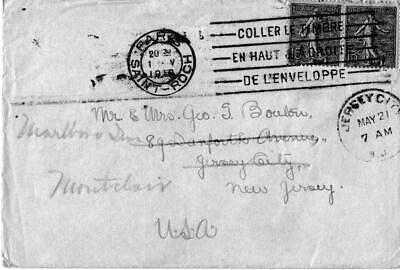 PARIS
20 30
1 · V
1918
SAINT-ROCH
COLLER LE TIMBRE
EN HAUT & À DROITE
DE L'ENVELOPPE
JERSEY CITY
MAY 21
7 AM
N.J.
Mr & Mrs. Geo. S. Bouton,
Marlboro Inn
89 Danforth Avenue,
Jersey City,
Montclair
New Jersey.
U.S.A